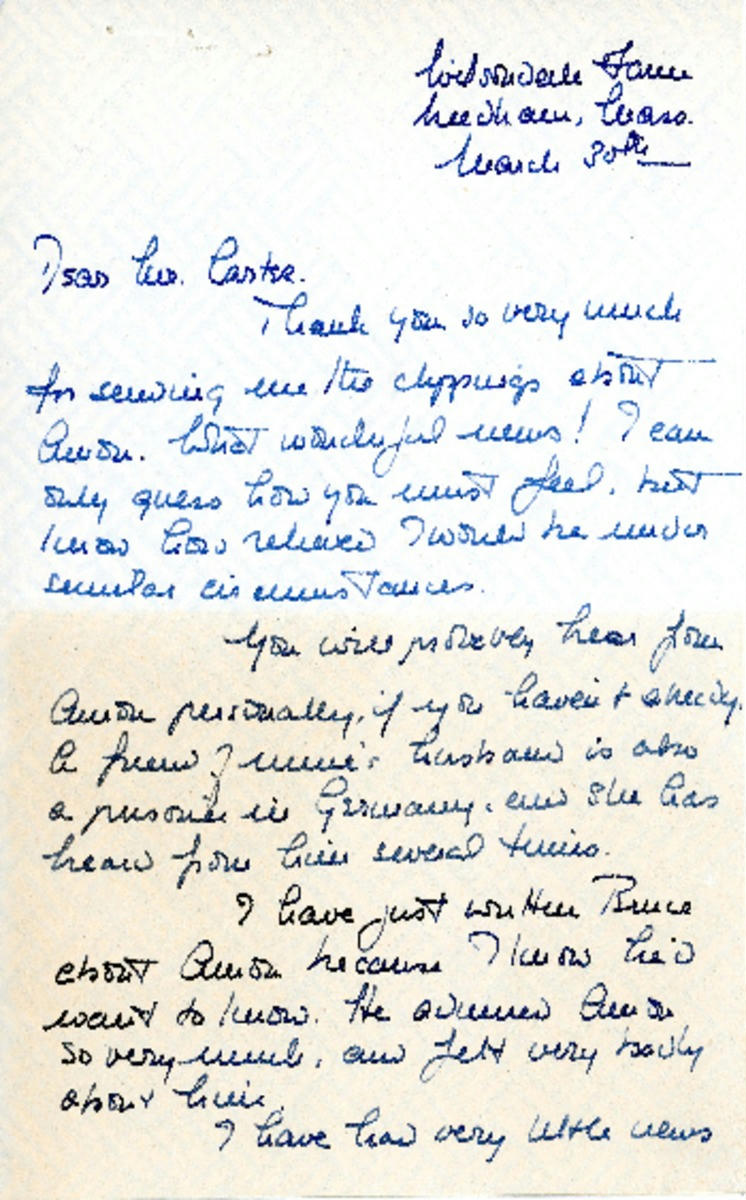 Wilsondale Farm
Needham, Mass.
March 30th
Dear Mr. Carter.
Thank you so very much
for sending me the clippings about
Amon. What wonderful news! I can
only guess how you must feel, but
know how relieved I would be under
similar circumstances.
You will probably hear from
Amon personally, if you haven't already.
A friend of mine's husband is also
a prisoner in Germany, and she has
heard from him several times.
I have just written Bruce
about Amon because I know he'd
want to know. He admired Amon
so very much, and felt very badly
about him.
I have had very little news